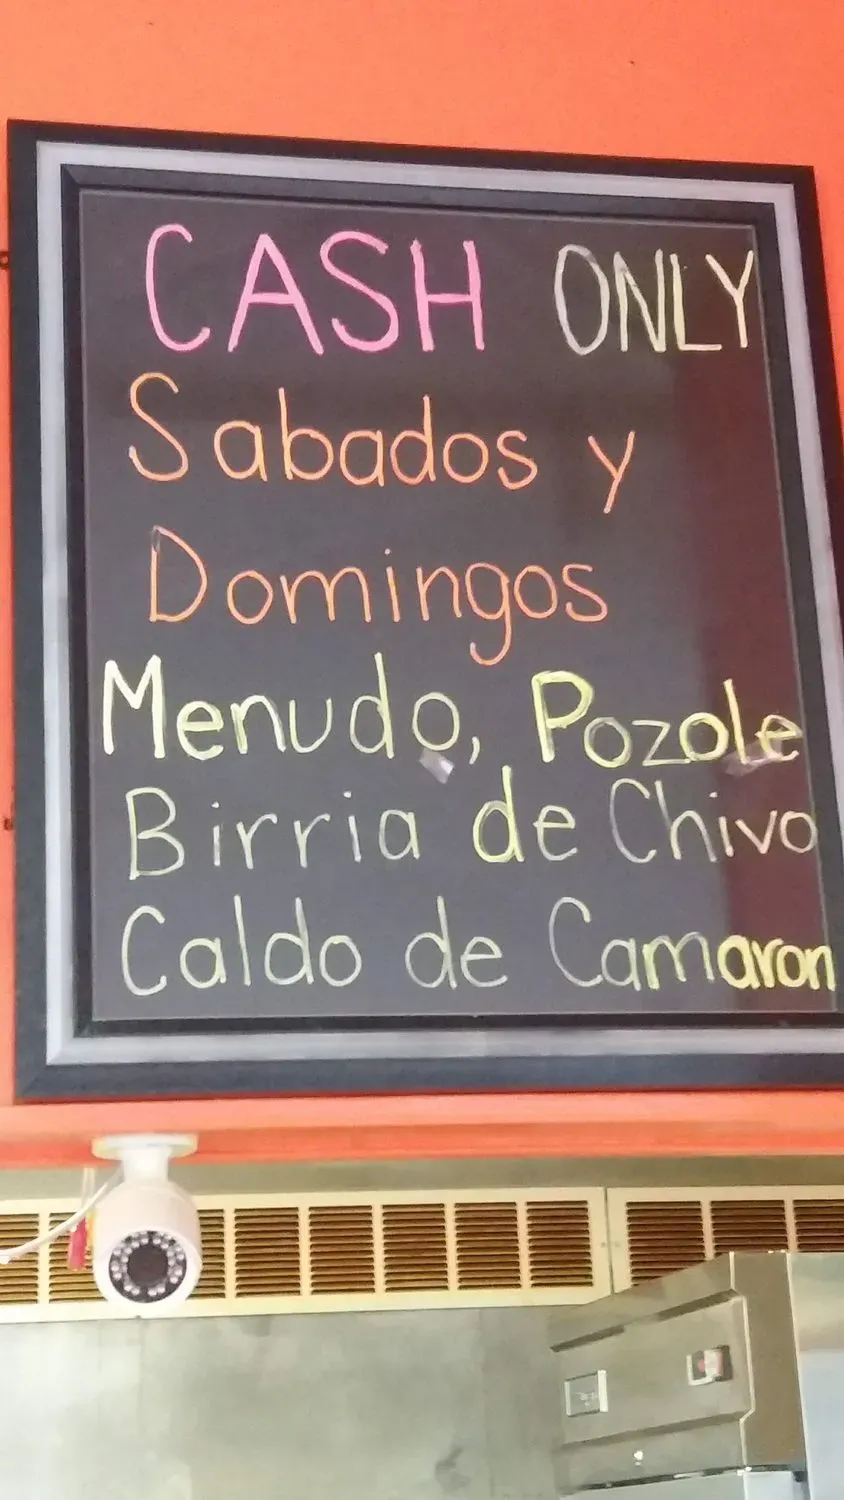 CASH ONLY
Sabados y
Domingos
Menudo, Pozole
Birria de Chivo
Caldo de Camaron